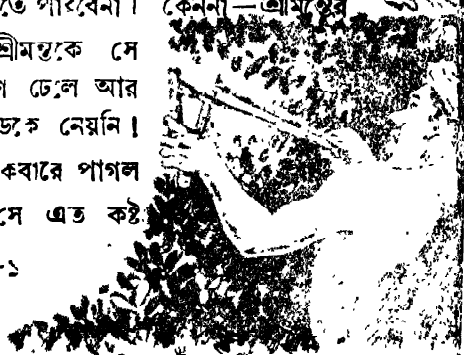 পারবেনা। কেননা—শ্রীমন্তের
শ্রীমন্তকে সে
ঢেলে আর
নেয়নি!
পাগল
সে এত কষ্ট